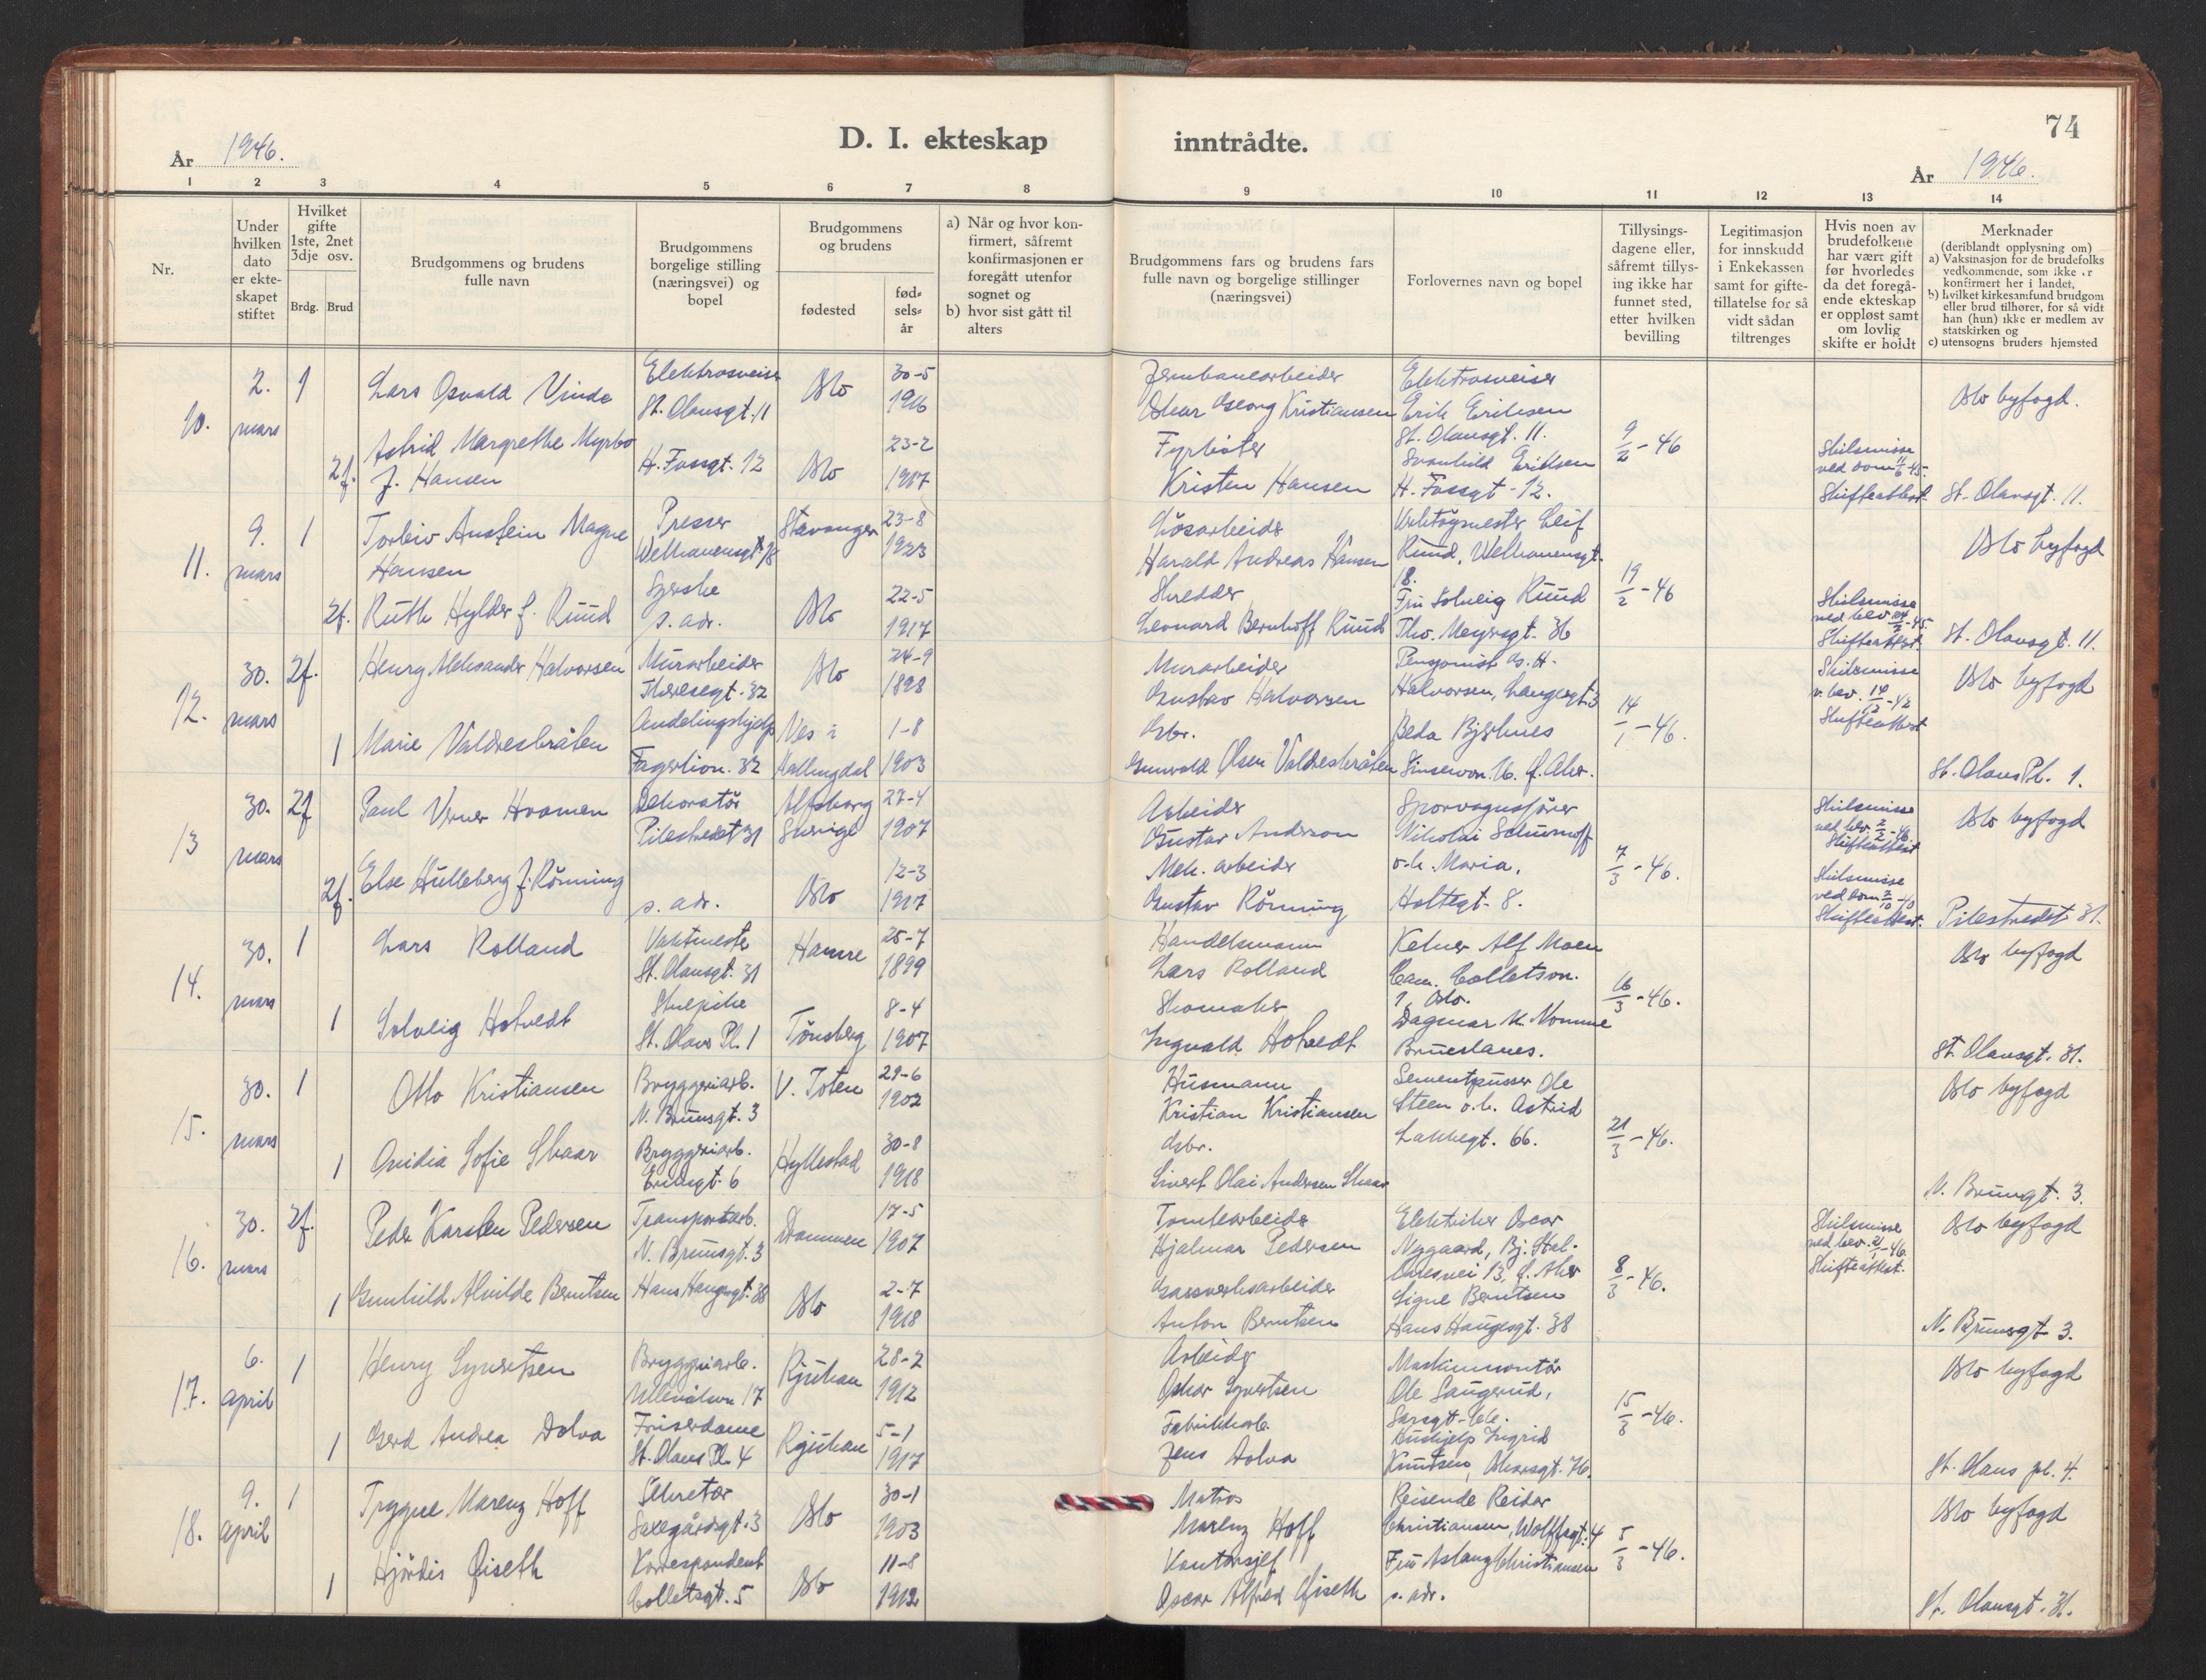 74
D. I. ekteskap inntrådte.
År 1946.
År 1946.
1 2 3 4 5 6 7 8 9 10 11 12 13 14
Nr.
Under hvilken dato er ekte-skapet stiftet
Hvilket gifte 1ste, 2net 3dje osv.
Brdg. Brud
Brudgommens og brudens fulle navn
Brudgommens borgelige stilling (næringsvei) og bopel
Brudgommens og brudens
fødested
fød-sels-år
a) Når og hvor kon-firmert, såfremt konfirmasjonen er foregått utenfor sognet og
b) hvor sist gått til alters
Brudgommens fars og brudens fars fulle navn og borgelige stillinger (næringsvei)
Forlovernes navn og bopel
Tillysings-dagene eller, såfremt tillys-ing ikke har funnet sted, etter hvilken bevilling
Legitimasjon for innskudd i Enkekassen samt for gifte-tillatelse for så vidt sådan tiltrenges
Hvis noen av brudefolkene har vært gift før hvorledes da det foregå-ende ekteskap er oppløst samt om lovlig skifte er holdt
Merknader
(deriblandt opplysning om)
a) Vaksinasjon for de brudefolks vedkommende, som ikke er konfirmert her i landet,
b) hvilket kirkesamfund brudgom eller brud tilhører, for så vidt han (hun) ikke er medlem av statskirken og
c) utensogns bruders hjemsted
10. 2. mars 1
Lars Osvald Vinde
Elektrosveiser
St. Olavsgt. 11
Oslo
30-5
1916
Jernbanearbeider
Oskar Georg Kristiansen
Elektrosveiser
Erik Eriksen
St. Olavsgt. 11.
Oslo byfogd.
2f. Astrid Margrethe Myrbo
f. Hansen
H. Fossgt. 12
Oslo
23-2
1917
Fyrbøter
Kristen Hansen
Svanhild Eriksen
H. Fossgt. 12.
9/2-46
Skilsmisse
ved dom 11/6-45.
Skifteattest.
St. Olavsgt. 11.
11. 9. mars 1
Torleiv Anstein Magne
Hansen
Presser
Welhavensgt. 18
Stavanger
23-8
1923
Løsarbeider
Harald Andreas Hansen
Verktøymester Leif
Ruud, Welhavensgt.
18.
Oslo byfogd
2f. Ruth Hylder f. Ruud
Syerske
s. adr.
Oslo
22-5
1917
Skredder
Leonard Bernhoff Ruud
Fru Solveig Ruud
Tho. Meyersgt. 36
19/2-46
Skilsmisse
Skifteattest.
St. Olavsgt. 11.
12. 30. mars 2f.
Henry Aleksander Halvorsen
Murarbeider
Theresegt. 32
Oslo
24-9
1898
Murarbeider
Gustav Halvorsen
Pensjonist
Halvorsen, Langesgt. 3
Skilsmisse
v. bev. 14/12-42
Skifteattest
Oslo byfogd
1 Marie Valdresbråten
Fagerlion. 32
Nes i
Hallingdal
1-8
1903
Gbr.
Gunvald Olsen Valdresbråten
Beda Bjerknes
14/1-46.
St. Olavs Pl. 1.
13 30. mars 2f
Paul Verner Hvamen
Dekoratør
Pilestredet 31
Alfsborg
Sverige
27-4
1907
Arbeider
Gustav Anderson
Sporvognsfører
Nikolai Schurnoff
Skilsmisse
ved bev. 2/2-46.
Skifteattest
Oslo byfogd
2f. Else Hulleberg f. Rönning
s. adr.
Oslo
12-3
1917
Mek. arbeider
Gustav Rönning
o.h. Maria.
Holtegt. 8.
7/3-46.
Skilsmisse
ved dom 2/10-40
Skifteattest.
Pilestredet 31.
14. 30. mars 1
Lars Rolland
Vaktmester
St. Olavsgt. 31
Hamre
25-7
1899
Handelsmann
Lars Rolland
Kelner Alf Moen
Cam. Colletsvn.
1, Oslo.
Oslo byfogd
1 Solveig Hotvedt
Stuepike
St. Olavs Pl. 1
Tönsberg
8-4
1907
Skomaker
Ingvald Hotvedt
Dagmar M. Nomme
Brunlanes.
16/3-46.
St. Olavsgt. 31.
15. 30. mars 1
Otto Kristiansen
Bryggeriarb.
N. Brunsgt. 3
V. Toten
29-6
1902
Husmann
Kristian Kristiansen
Sementpusser Ole
Steen o.h. Astrid
Lakkegt. 66.
Oslo byfogd
1 Ovidia Sofie Skaar
Bryggeriarb.
Hyllestad
30-8
1918
Gbr.
Sivert Olai Andersen Skaar
21/3-46.
N. Brunsgt. 3.
16. 30. mars 2f.
Peder Karsten Pedersen
Transportarb.
N. Brunsgt. 3
Drammen
17-5
1907
Tomtearbeider
Hjalmar Pedersen
Elektriker Oscar
Nygaard, Bj. Stal-
Skilsmisse
Skifteattest.
Oslo byfogd
1 Gunhild Alvilde Berntsen
Hans Haugesgt. 38
Oslo
2-7
1918
Gassverksarbeider
Anton Berntsen
Signe Berntsen
Hans Haugesgt. 38
8/3-46.
N. Brunsgt. 3.
17. 6. april 1
Henry Syvertsen
Bryggeriarb.
Ullevålsvn 17
Rjukan
28-2
1912
Arbeider
Oskar Syvertsen
Maskinmontör
Ole Saugerud,
Oslo byfogd
1 Gerd Andrea Dolva
Friserdame
St. Olavs Pl. 4
Rjukan
5-1
1917
Fabrikkarb.
Jens Dolva
Hushjelp Ingrid
Knutsen, Oskarsgt. 76.
15/3-46.
St. Olavs pl. 4.
18. 9. april 1
Trygve Marenz Hoff
Sekretær
Saxegårdsgt. 3
Oslo
30-1
1903
Matros
Marenz Hoff
Reisende Reidar
Christiansen, Wolffsgt. 4
Oslo byfogd
1 Hjördis Giseth
Korrespondent
Colletsgt. 5
Oslo
11-8
1912
Kontorsjef
Oscar Alfred Giseth
Fru Aslaug Christiansen
s. adr.
5/3-46.
St. Olavsgt. 31.